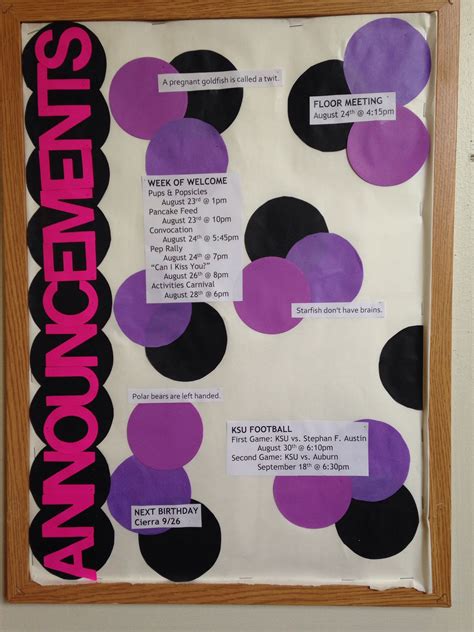 ANNOUNCEMENTS
A pregnant goldfish is called a twit.
FLOOR MEETING
August 24th @ 4:15pm
WEEK OF WELCOME
Pups & Popsicles
August 23rd @ 1pm
Pancake Feed
August 23rd @ 10pm
Convocation
August 24th @ 5:45pm
Pep Rally
August 24th @ 7pm
"Can I Kiss You?"
August 26th @ 8pm
Activities Carnival
August 28th @ 6pm
Starfish don't have brains.
Polar bears are left handed.
KSU FOOTBALL
First Game: KSU vs. Stephan F. Austin
August 30th @ 6:10pm
Second Game: KSU vs. Auburn
September 18th @ 6:30pm
NEXT BIRTHDAY
Cierra 9/26